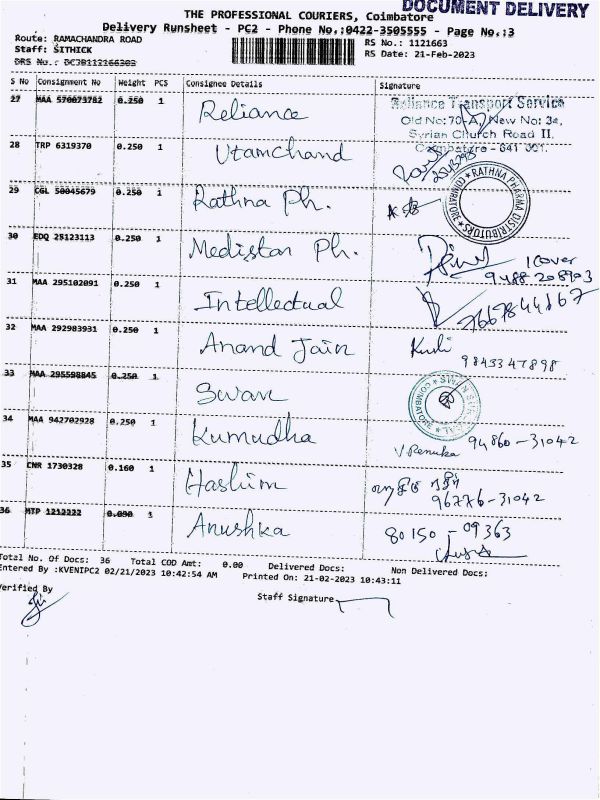 DOCUMENT DELIVERY
THE PROFESSIONAL COURIERS, Coimbatore
Delivery Runsheet - PC2 - Phone No.:0422-3505555 - Page No.:3
Route: RAMACHANDRA ROAD RS No.: 1121663
Staff: SITHICK RS Date: 21-Feb-2023
DRS No.:
S No Consignment No Weight PCS Consignee Details Signature
27 MAA 570073782 0.250 1 Reliance Reliance Transport Service
Old No: 70-A, New No: 34,
Syrian Church Road II,
Coimbatore - 641 001.
28 TRP 6319370 0.250 1 Utamchand
29 CGL 50045679 0.250 1 Rathna Ph. RATHNA PHARMA DISTRIBUTORS * COIMBATORE *
30 EDQ 25123113 0.250 1 Medistar Ph. 1 Cover
9488208903
31 MAA 295102091 0.250 1 Intellectual 7667844867
32 MAA 292983931 0.250 1 Anand Jain
9843347898
33 MAA 295598845 0.250 1 Swan SWAN COIMBATORE
34 MAA 942702928 0.250 1 Kumudha V Renuka 94860-31042
35 CNR 1730328 0.160 1 Hashim
96776-31042
36 MTP 1212222 0.090 1 Anushka 80150-09363
Total No. Of Docs: 36 Total COD Amt: 0.00 Delivered Docs: Non Delivered Docs:
Entered By :KVENIPC2 02/21/2023 10:42:54 AM Printed On: 21-02-2023 10:43:11
Verified By Staff Signature